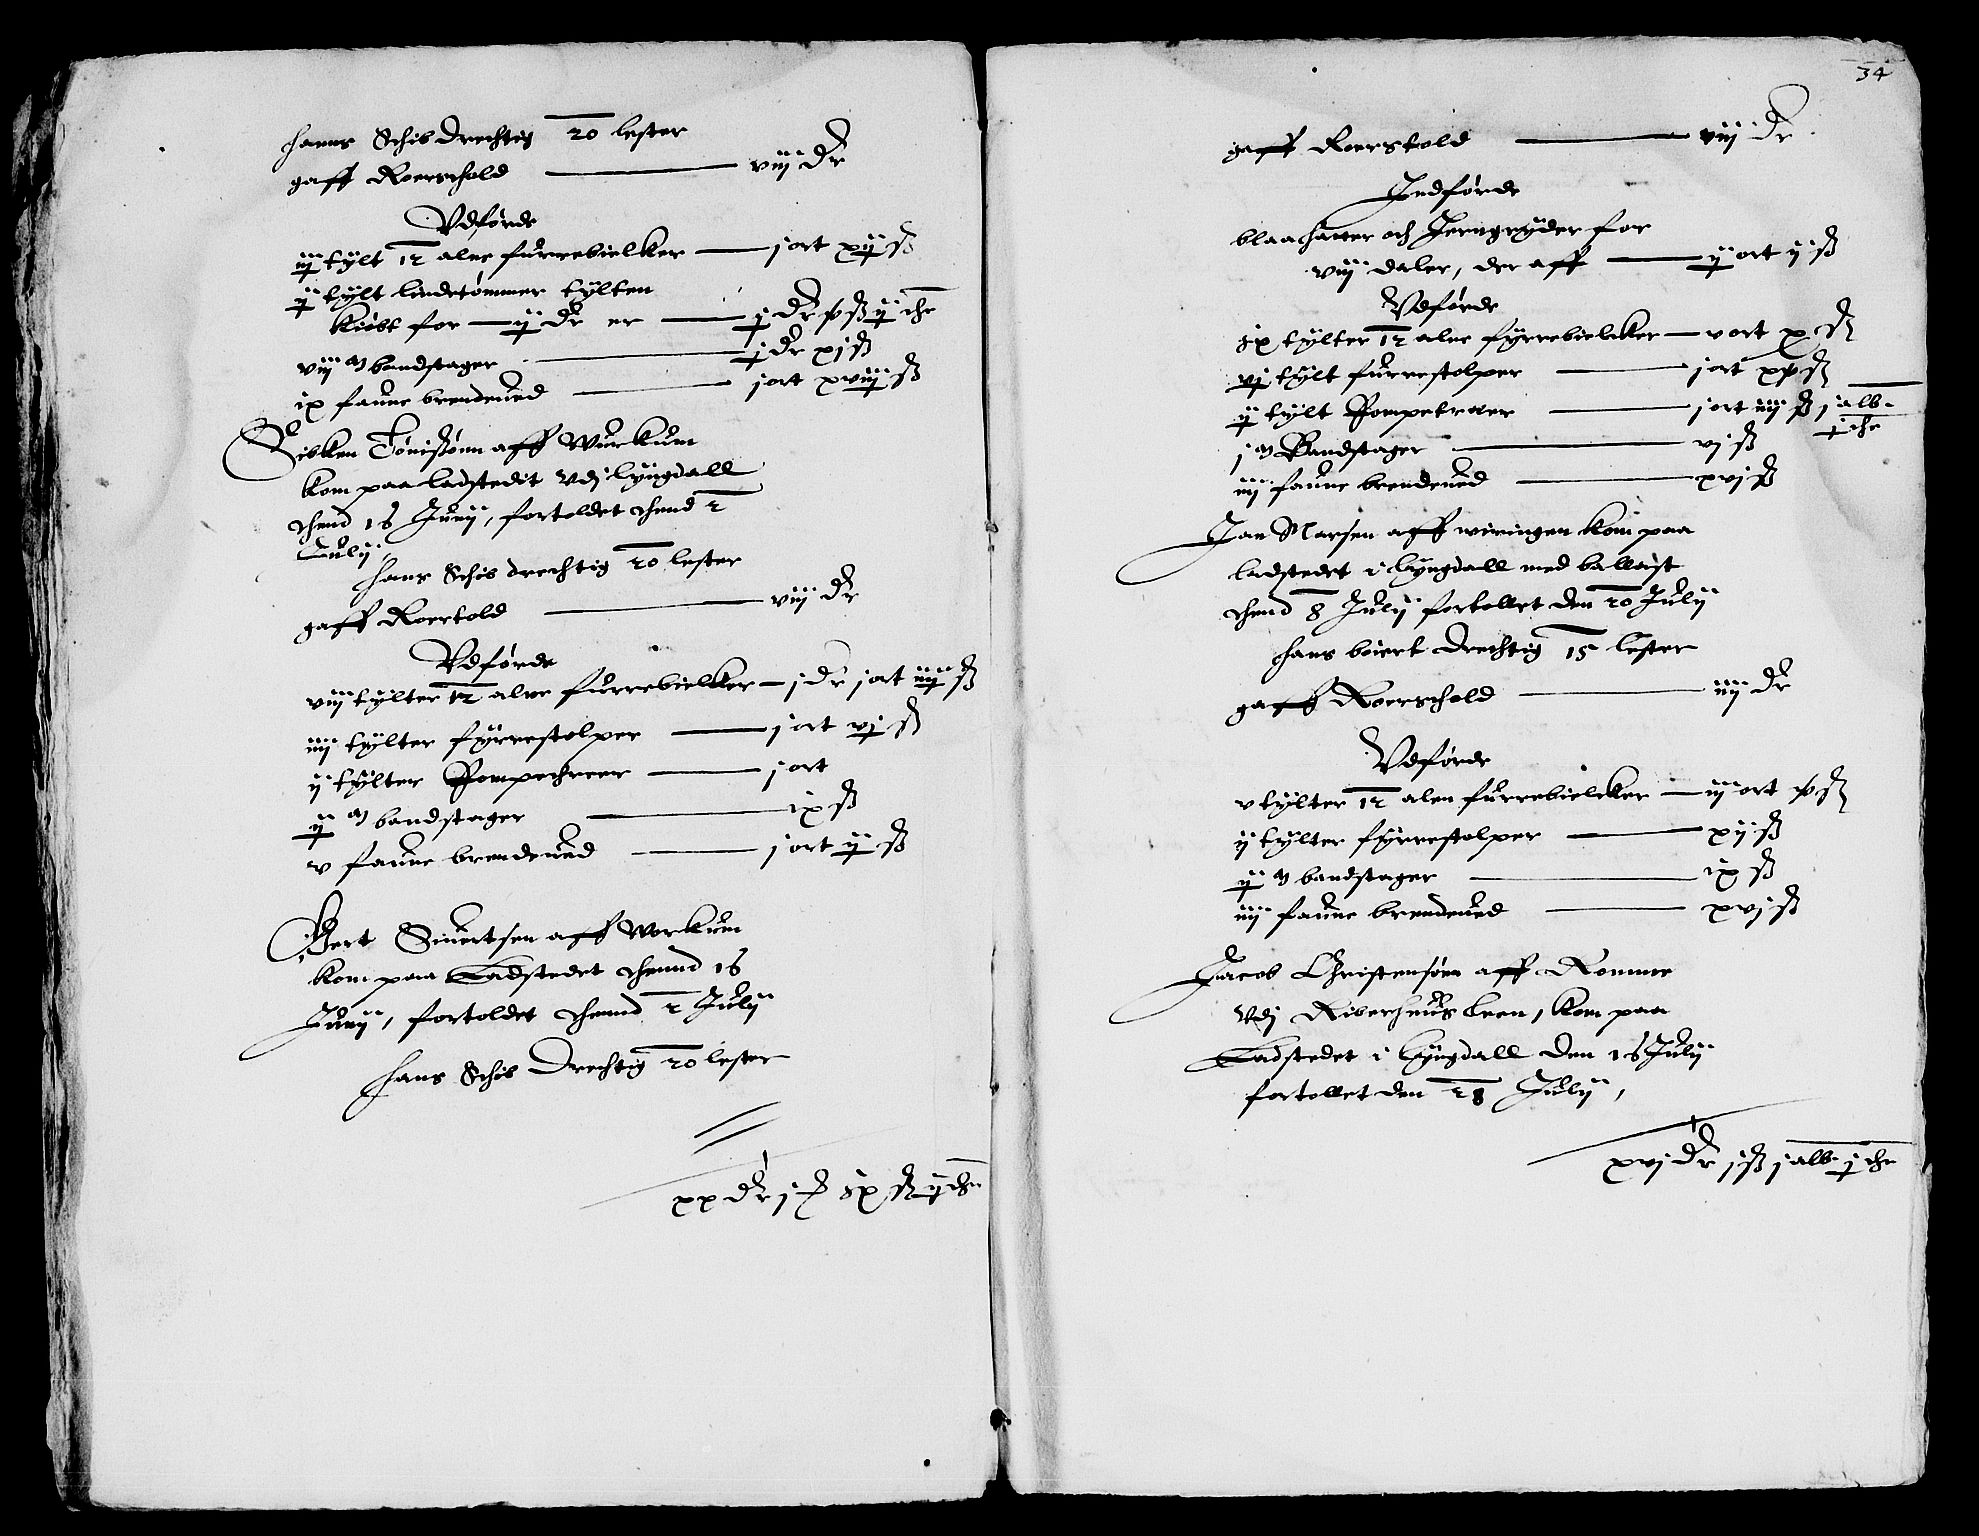 hanns Schib drechtig 20 lester
gaff Roerschold — viij dr
Vdførde
iij tylt 12 alne furrebielcker — j ort xij ß
ij tylt lindetømmer tylten
kiøbt for — ij dr er — j dr xß ij che
viij m bandstager — j dr xj ß
ix faune brendeued — j ort xviij ß
Sibken Tønisßønn aff Wurkum
kom paa ladstedit vdj Lyngdall
thend 16 Junij, fortoldet thend 2
Julij,
hans Schib drechtig 20 lester
gaff Roertold — viij dr
Vdførde
viij tylter 12 alne furrebielcker — j dr j ort iiij ß
iiij tylter fyrrestolper — j ort vj ß
ij tylter Pompethreer — j ort
ij m bandstager — ix ß
v faune brendeued — j ort ij ß
Gert Siuertsen aff Workum
kom paa Ladstedet thennd 16
Junij, fortoldet thennd 2 Julij
hans Schib Drechtig 20 lester
xx dr j ß ij che
34
gaff Roerstold — viij dr
Indførde
blaa hatter och Jerngryder for
viij daler, der aff — ij ort ij ß
Vdførde
ix tylter 12 alne fyrrebielcker — v ort x ß
vj tylt furrestolper — j ort xv ß
ij tylt Pompetræer — j ort iiij ß j alb
j che
j m Bandstager — vj ß
iiij faune brendeued — xvj ß
Jan Marsen aff wiringen kom paa
ladstedet i Lyngdall med ballast
thend 8 Julij fortollet den 20 Julij
hans boiert drechtig 15 lester
gaff Roerschold — iiij dr
Vdførde
v tylter 12 alen furrebielcker — iij ort xß
ij tylter fyrrestolper — xij ß
ij m bandstager — ix ß
iiij faune brendeued — xvj ß
Jacob Christensønn aff Romme
vdj Riberhuus Leen, kom paa
Ladstedet i Lyngdall den 16 Julij
fortollet den 28 Julij,
xvj dr j ß j alb j che